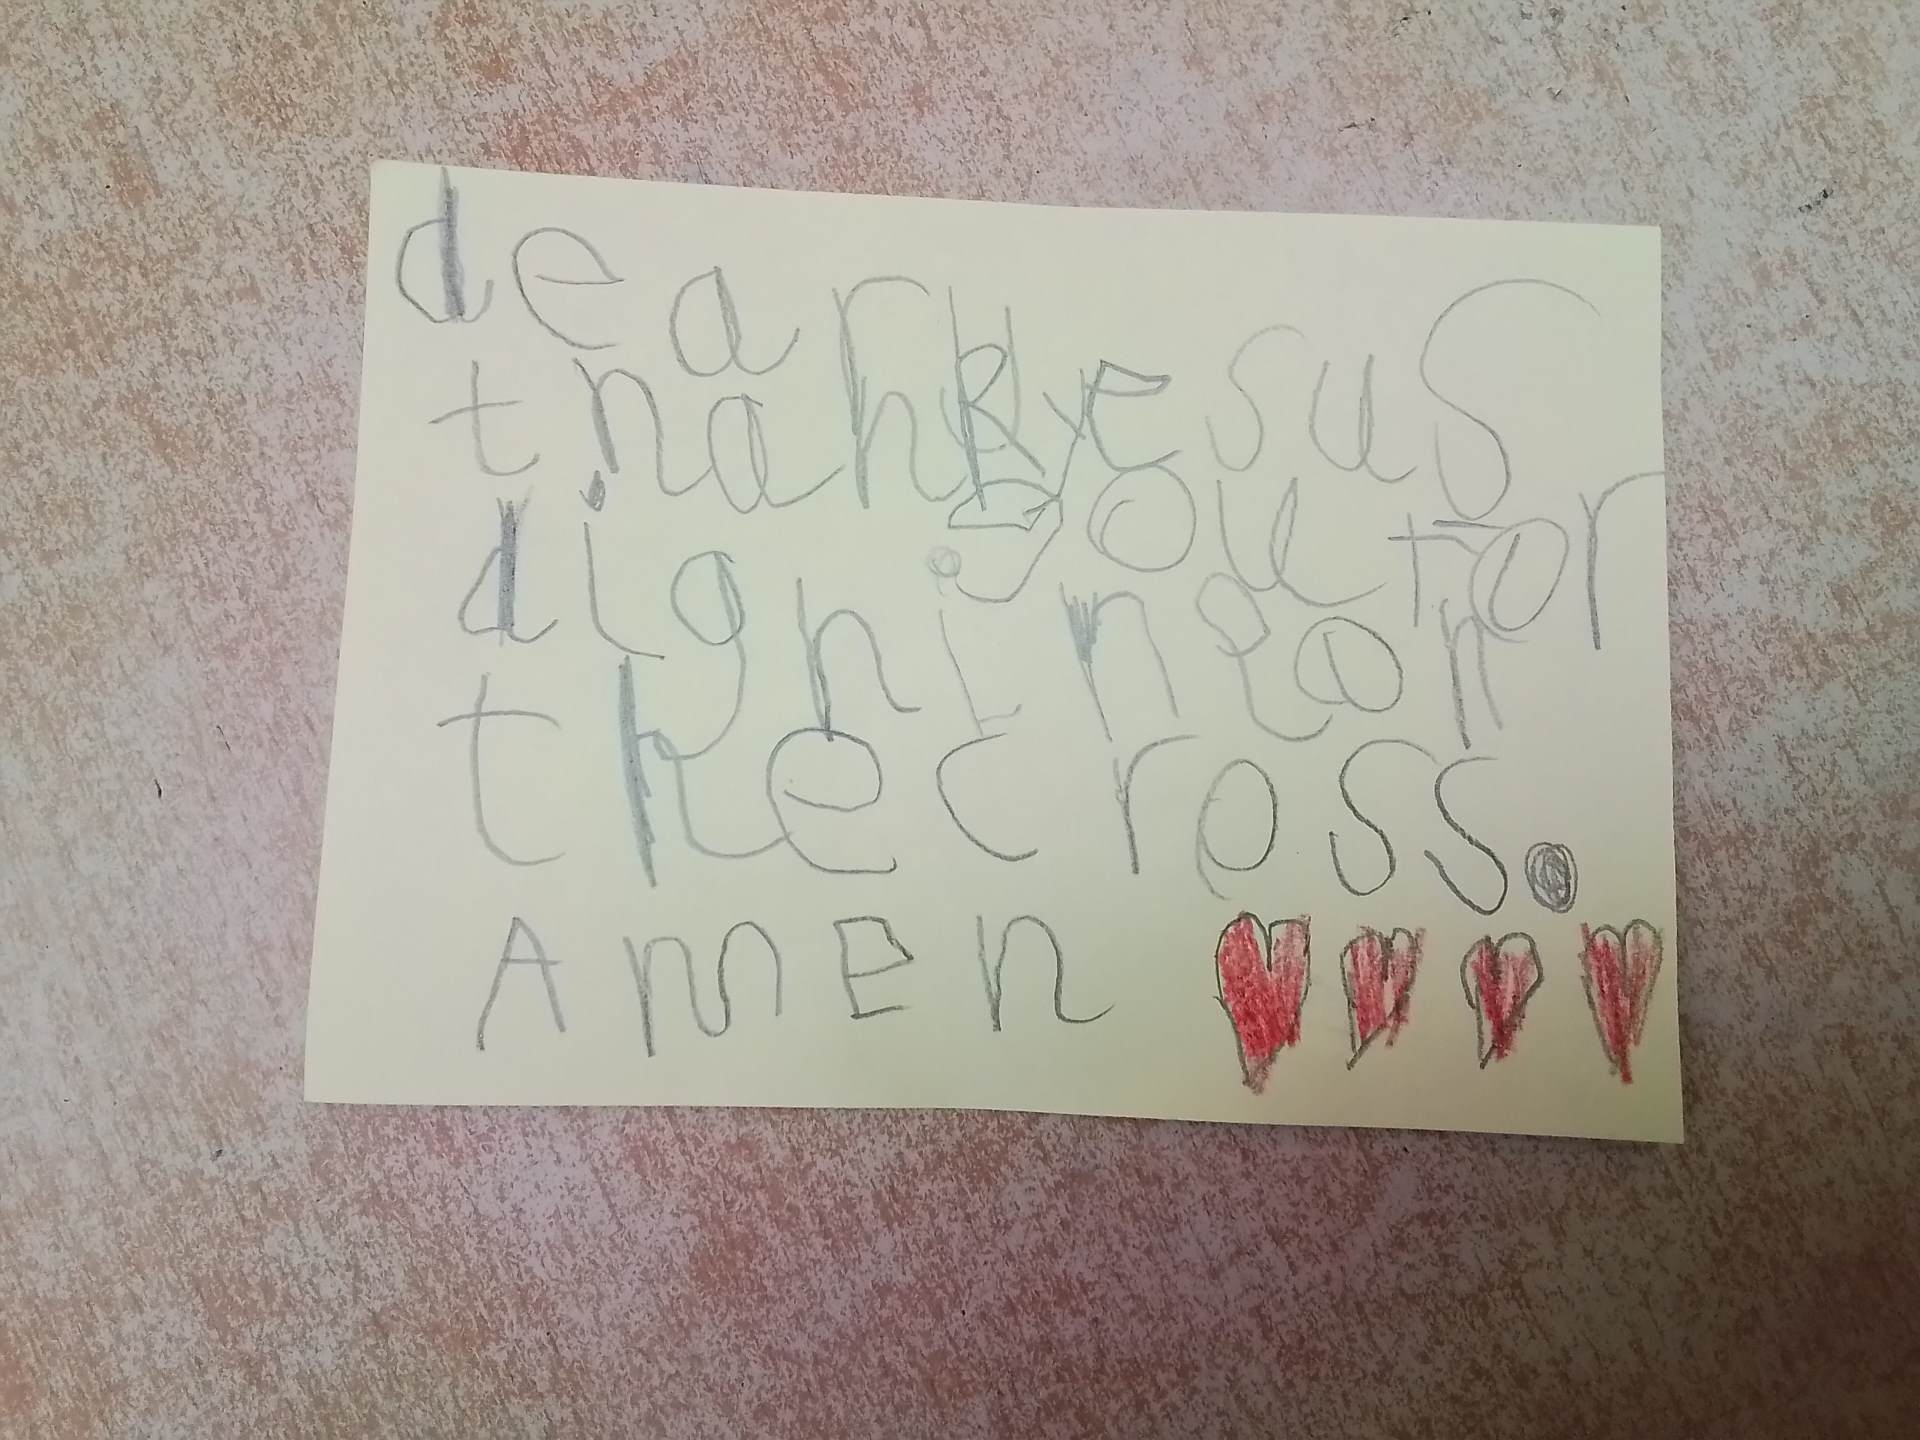 dear Jesus
thank you for
digning on
the cross.
AmEn